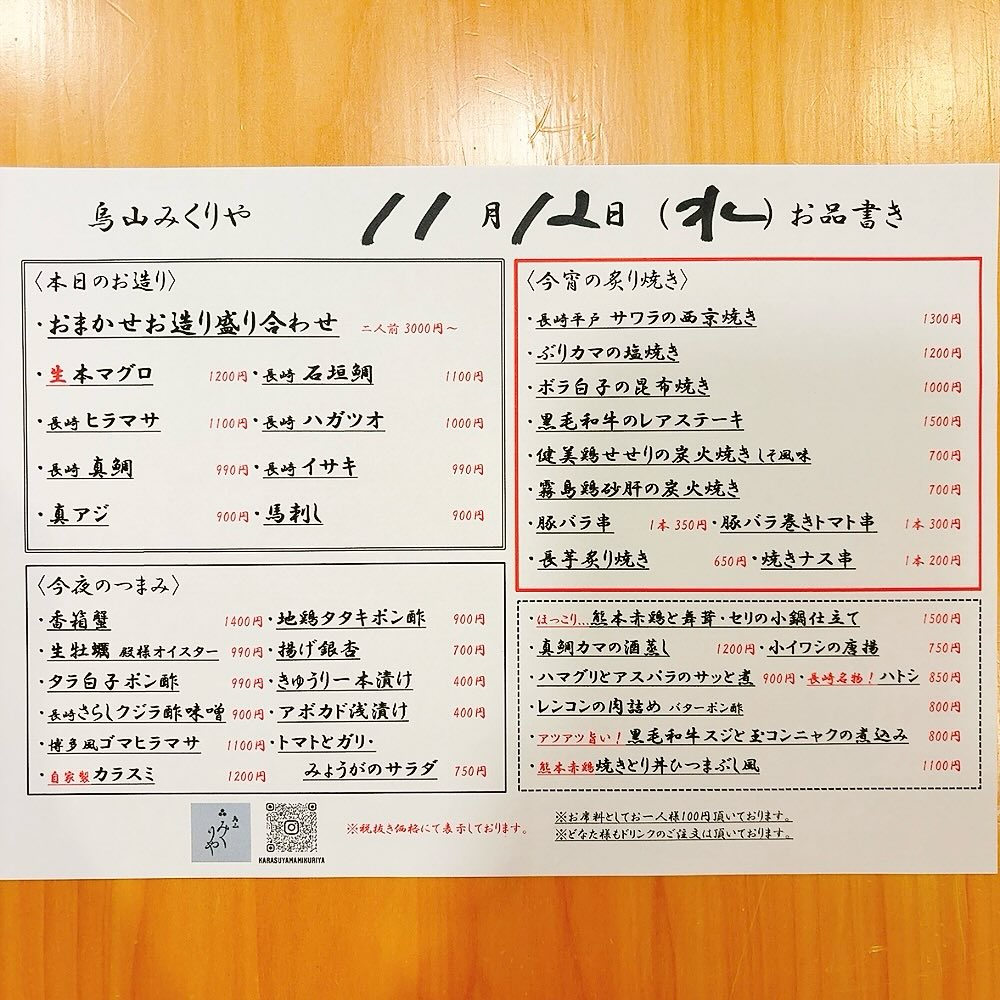 烏山みくりや 11月12日(水)お品書き
〈本日のお造り〉
・おまかせお造り盛り合わせ 二人前 3000円〜
・生本マグロ 1200円・長崎 石垣鯛 1100円
・長崎 ヒラマサ 1100円・長崎 ハガツオ 1000円
・長崎 真鯛 990円・長崎 イサキ 990円
・真アジ 900円・馬刺し 900円
〈今夜のつまみ〉
・香箱蟹 1400円・地鶏タタキポン酢 900円
・生牡蠣 殿様オイスター 990円・揚げ銀杏 700円
・タラ白子ポン酢 990円・きゅうり一本漬け 400円
・長崎さらしクジラ酢味噌 900円・アボカド浅漬け 400円
・博多風ゴマヒラマサ 1100円・トマトとガリ・
・自家製カラスミ 1200円 みょうがのサラダ 750円
〈今宵の炙り焼き〉
・長崎平戸 サワラの西京焼き 1300円
・ぶりカマの塩焼き 1200円
・ボラ白子の昆布焼き 1000円
・黒毛和牛のレアステーキ 1500円
・健美鶏せせりの炭火焼き しそ風味 700円
・霧島鶏砂肝の炭火焼き 700円
・豚バラ串 1本 350円・豚バラ巻きトマト串 1本 300円
・長芋炙り焼き 650円・焼きナス串 1本 200円
・ほっこり…熊本赤鶏と舞茸・セリの小鍋仕立て 1500円
・真鯛カマの酒蒸し 1200円・小イワシの唐揚 750円
・ハマグリとアスパラのサッと煮 900円・長崎名物！ハトシ 850円
・レンコンの肉詰め バターポン酢 800円
・アツアツ旨い！黒毛和牛スジと玉コンニャクの煮込み 800円
・熊本赤鶏焼きとり丼ひつまぶし風 1100円
みくりや
KARASUYAMAMIKURIYA
※税抜き価格にて表示しております。
※お席料としてお一人様100円頂いております。
※どなた様もドリンクのご注文は頂いております。